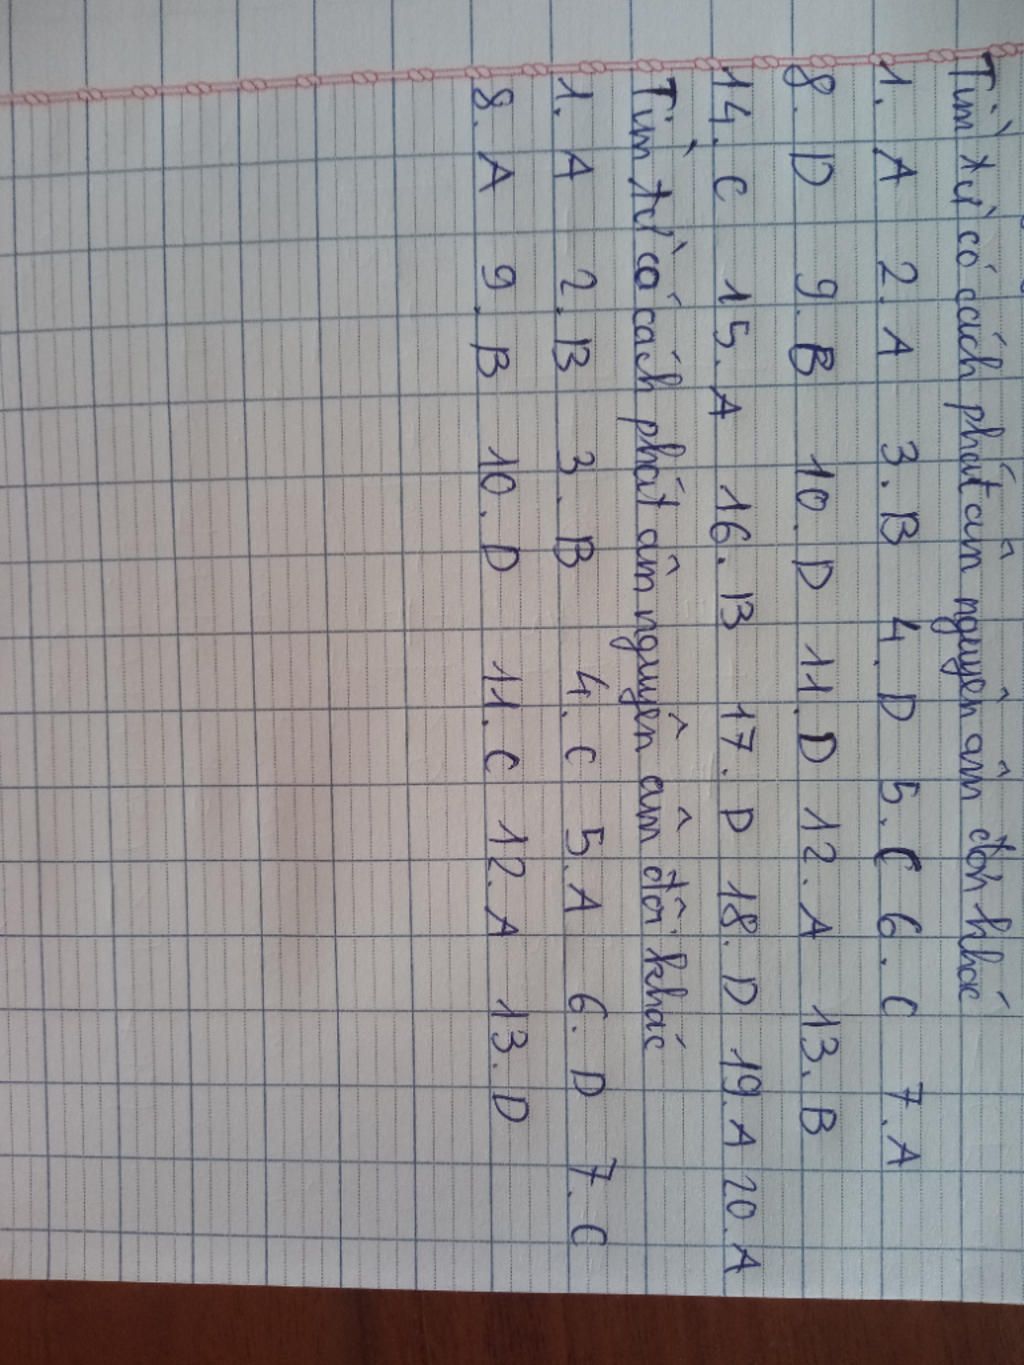 Tìm từ có cách phát âm nguyên âm đơn khác
1. A 2. A 3. B 4. D 5. C 6. C 7. A
8. D 9. B 10. D 11. D 12. A 13. B
14. C 15. A 16. B 17. D 18. D 19. A 20. A
Tìm từ có cách phát âm nguyên âm đôi khác
1. A 2. B 3. B 4. C 5. A 6. D 7. C
8. A 9. B 10. D 11. C 12. A 13. D